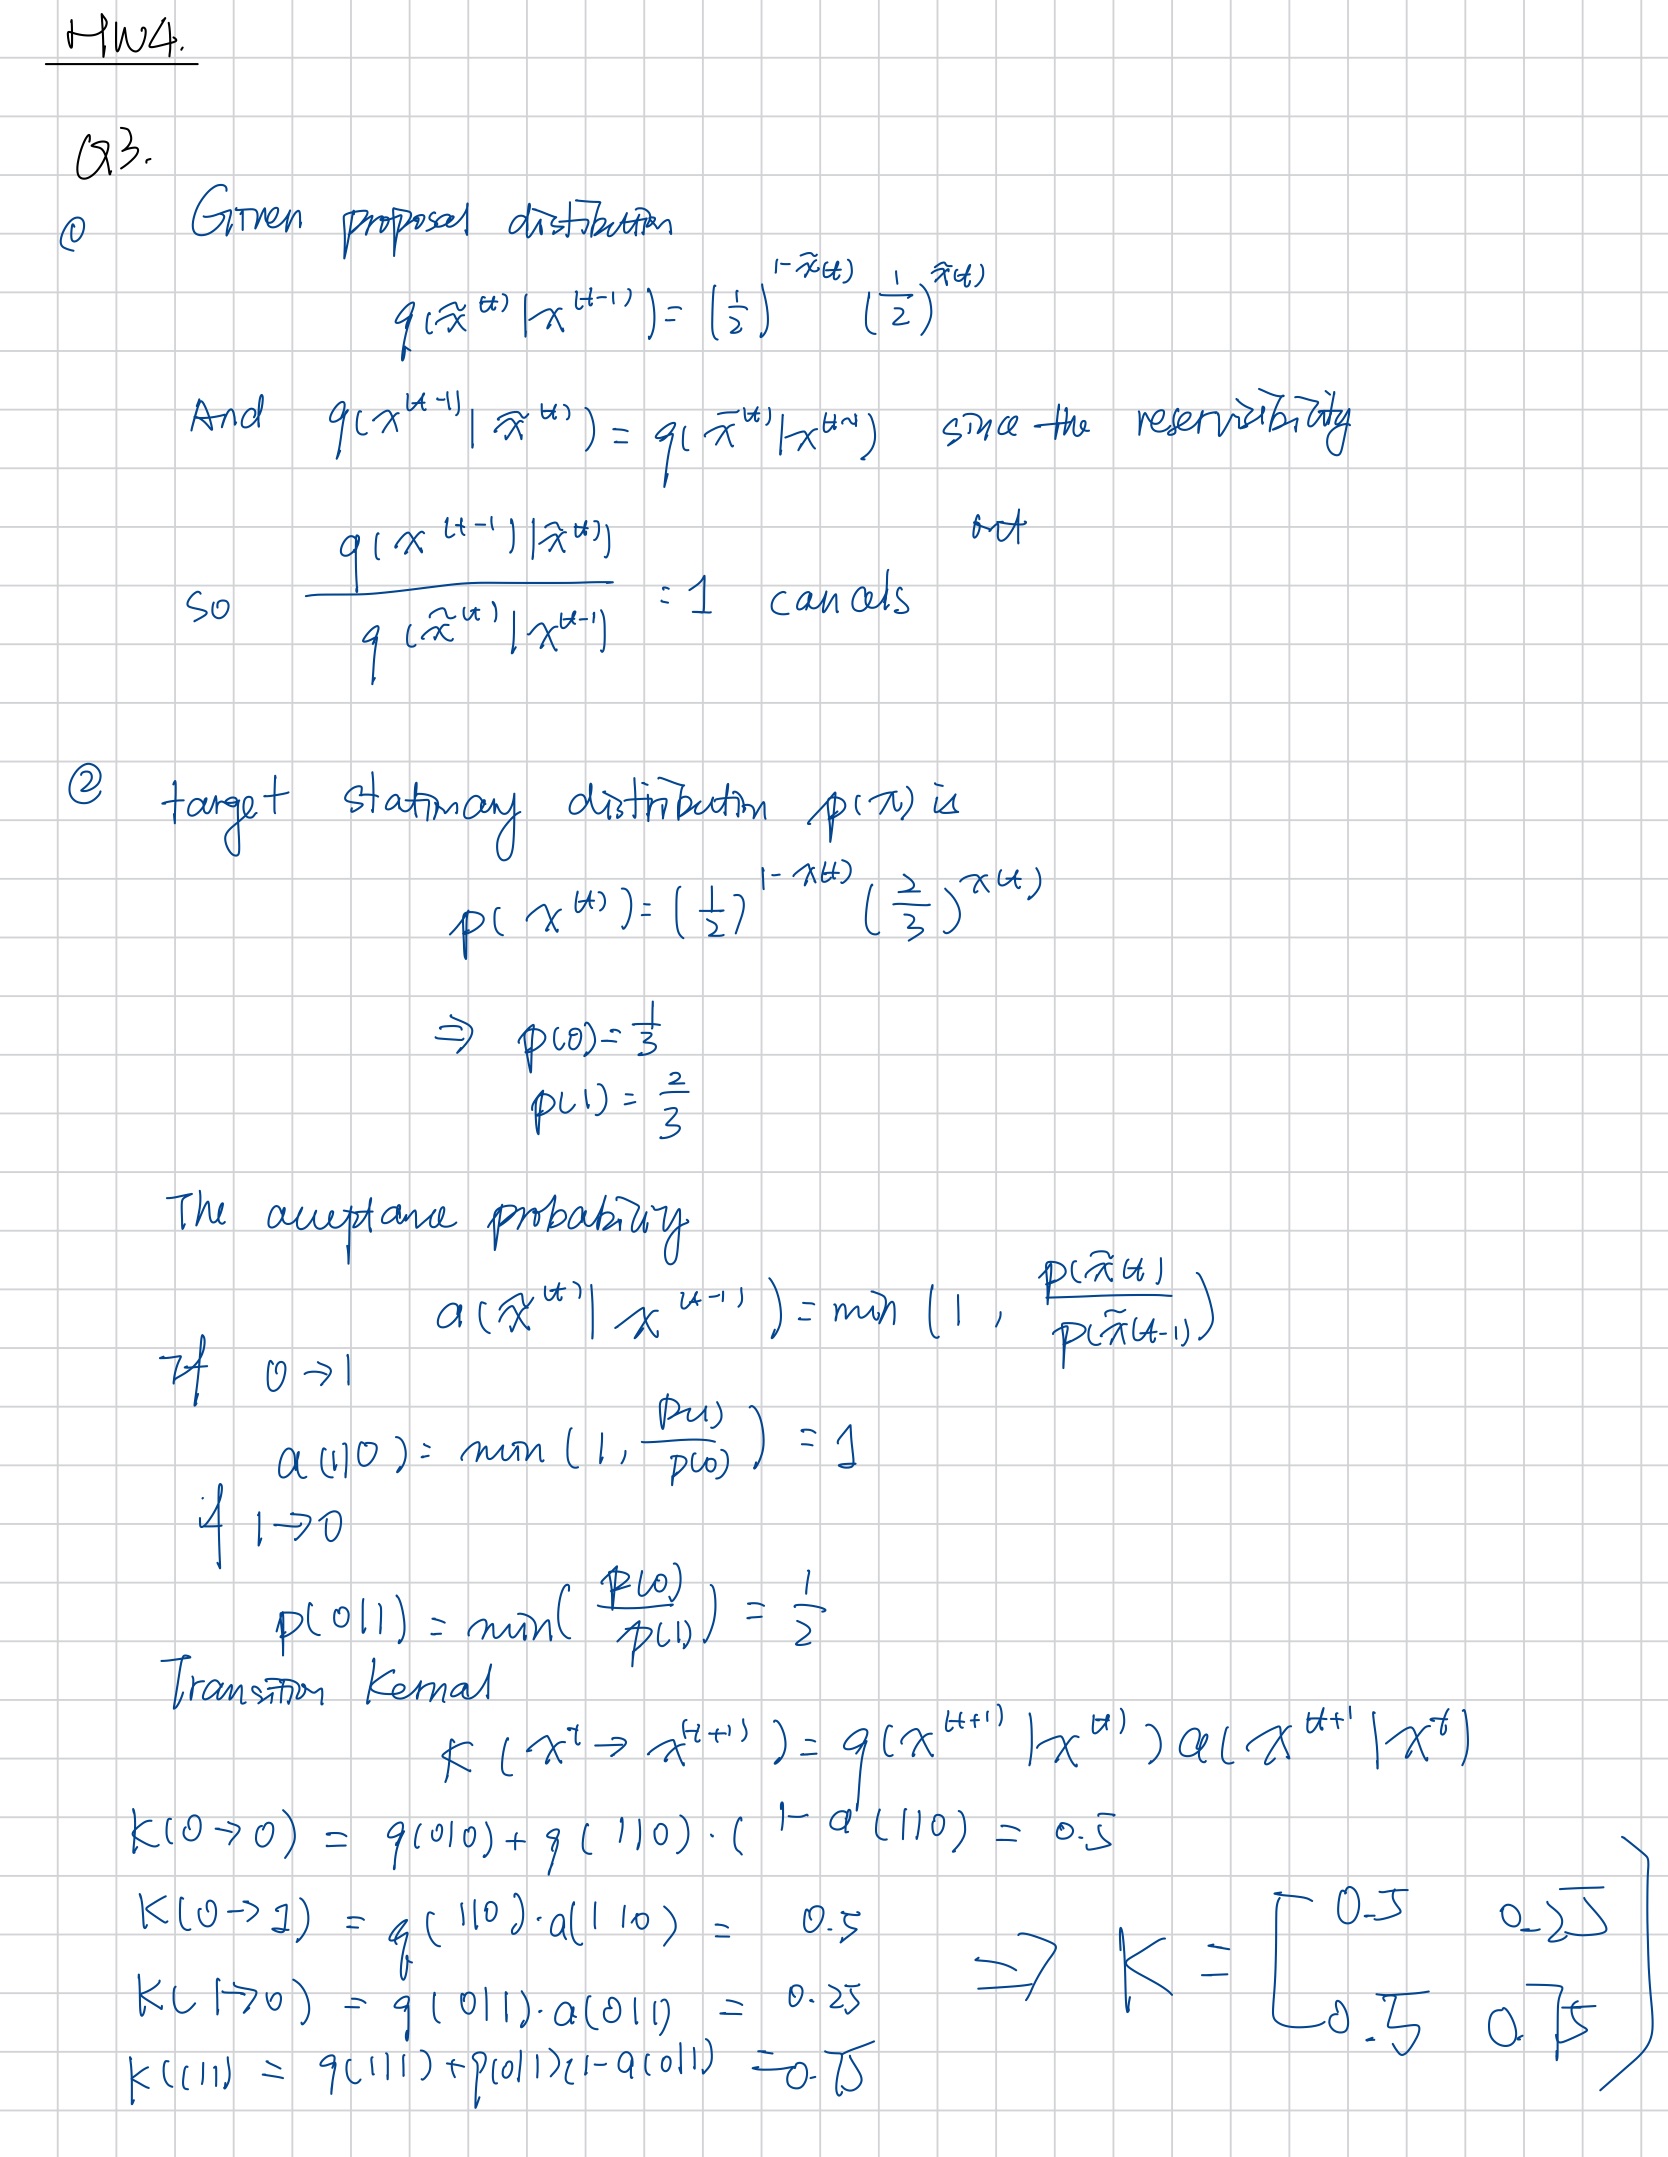 HW4.
Q3.
① Given proposal distribution
q(x̃^(t) | x^(t-1)) = (1/2)^(1-x̃(t)) (1/2)^(x̃(t))
And q(x^(t-1) | x̃^(t)) = q(x̃^(t) | x^(t-1)) since the reserviribility
so q(x^(t-1) | x̃^(t)) / q(x̃^(t) | x^(t-1)) = 1 cancels out
② target stationary distribution p(x) is
p(x^(t)) = (1/2)^(1-x(t)) (2/3)^(x(t))
⇒ p(0) = 1/3
p(1) = 2/3
The acceptance probability
a(x̃^(t) | x^(t-1)) = min (1, p(x̃(t)) / p(x̃(t-1)))
If 0→1
a(1|0) = min (1, p(1)/p(0)) = 1
if 1→0
p(0|1) = min( p(0)/p(1) ) = 1/2
Transition Kernal
K (x^t → x^(t+1)) = q(x^(t+1) | x^(t)) a(x^(t+1 | x^t)
K(0→0) = q(0|0) + q(1|0)·(1-a(1|0) = 0.5
K(0→1) = q(1|0)·a(1|0) = 0.5
K(1→0) = q(0|1)·a(0|1) = 0.25
K(1|1) = q(1|1) + q(0|1)(1-a(0|1) = 0.75
⇒ K = [0.5 0.25
0.5 0.75]